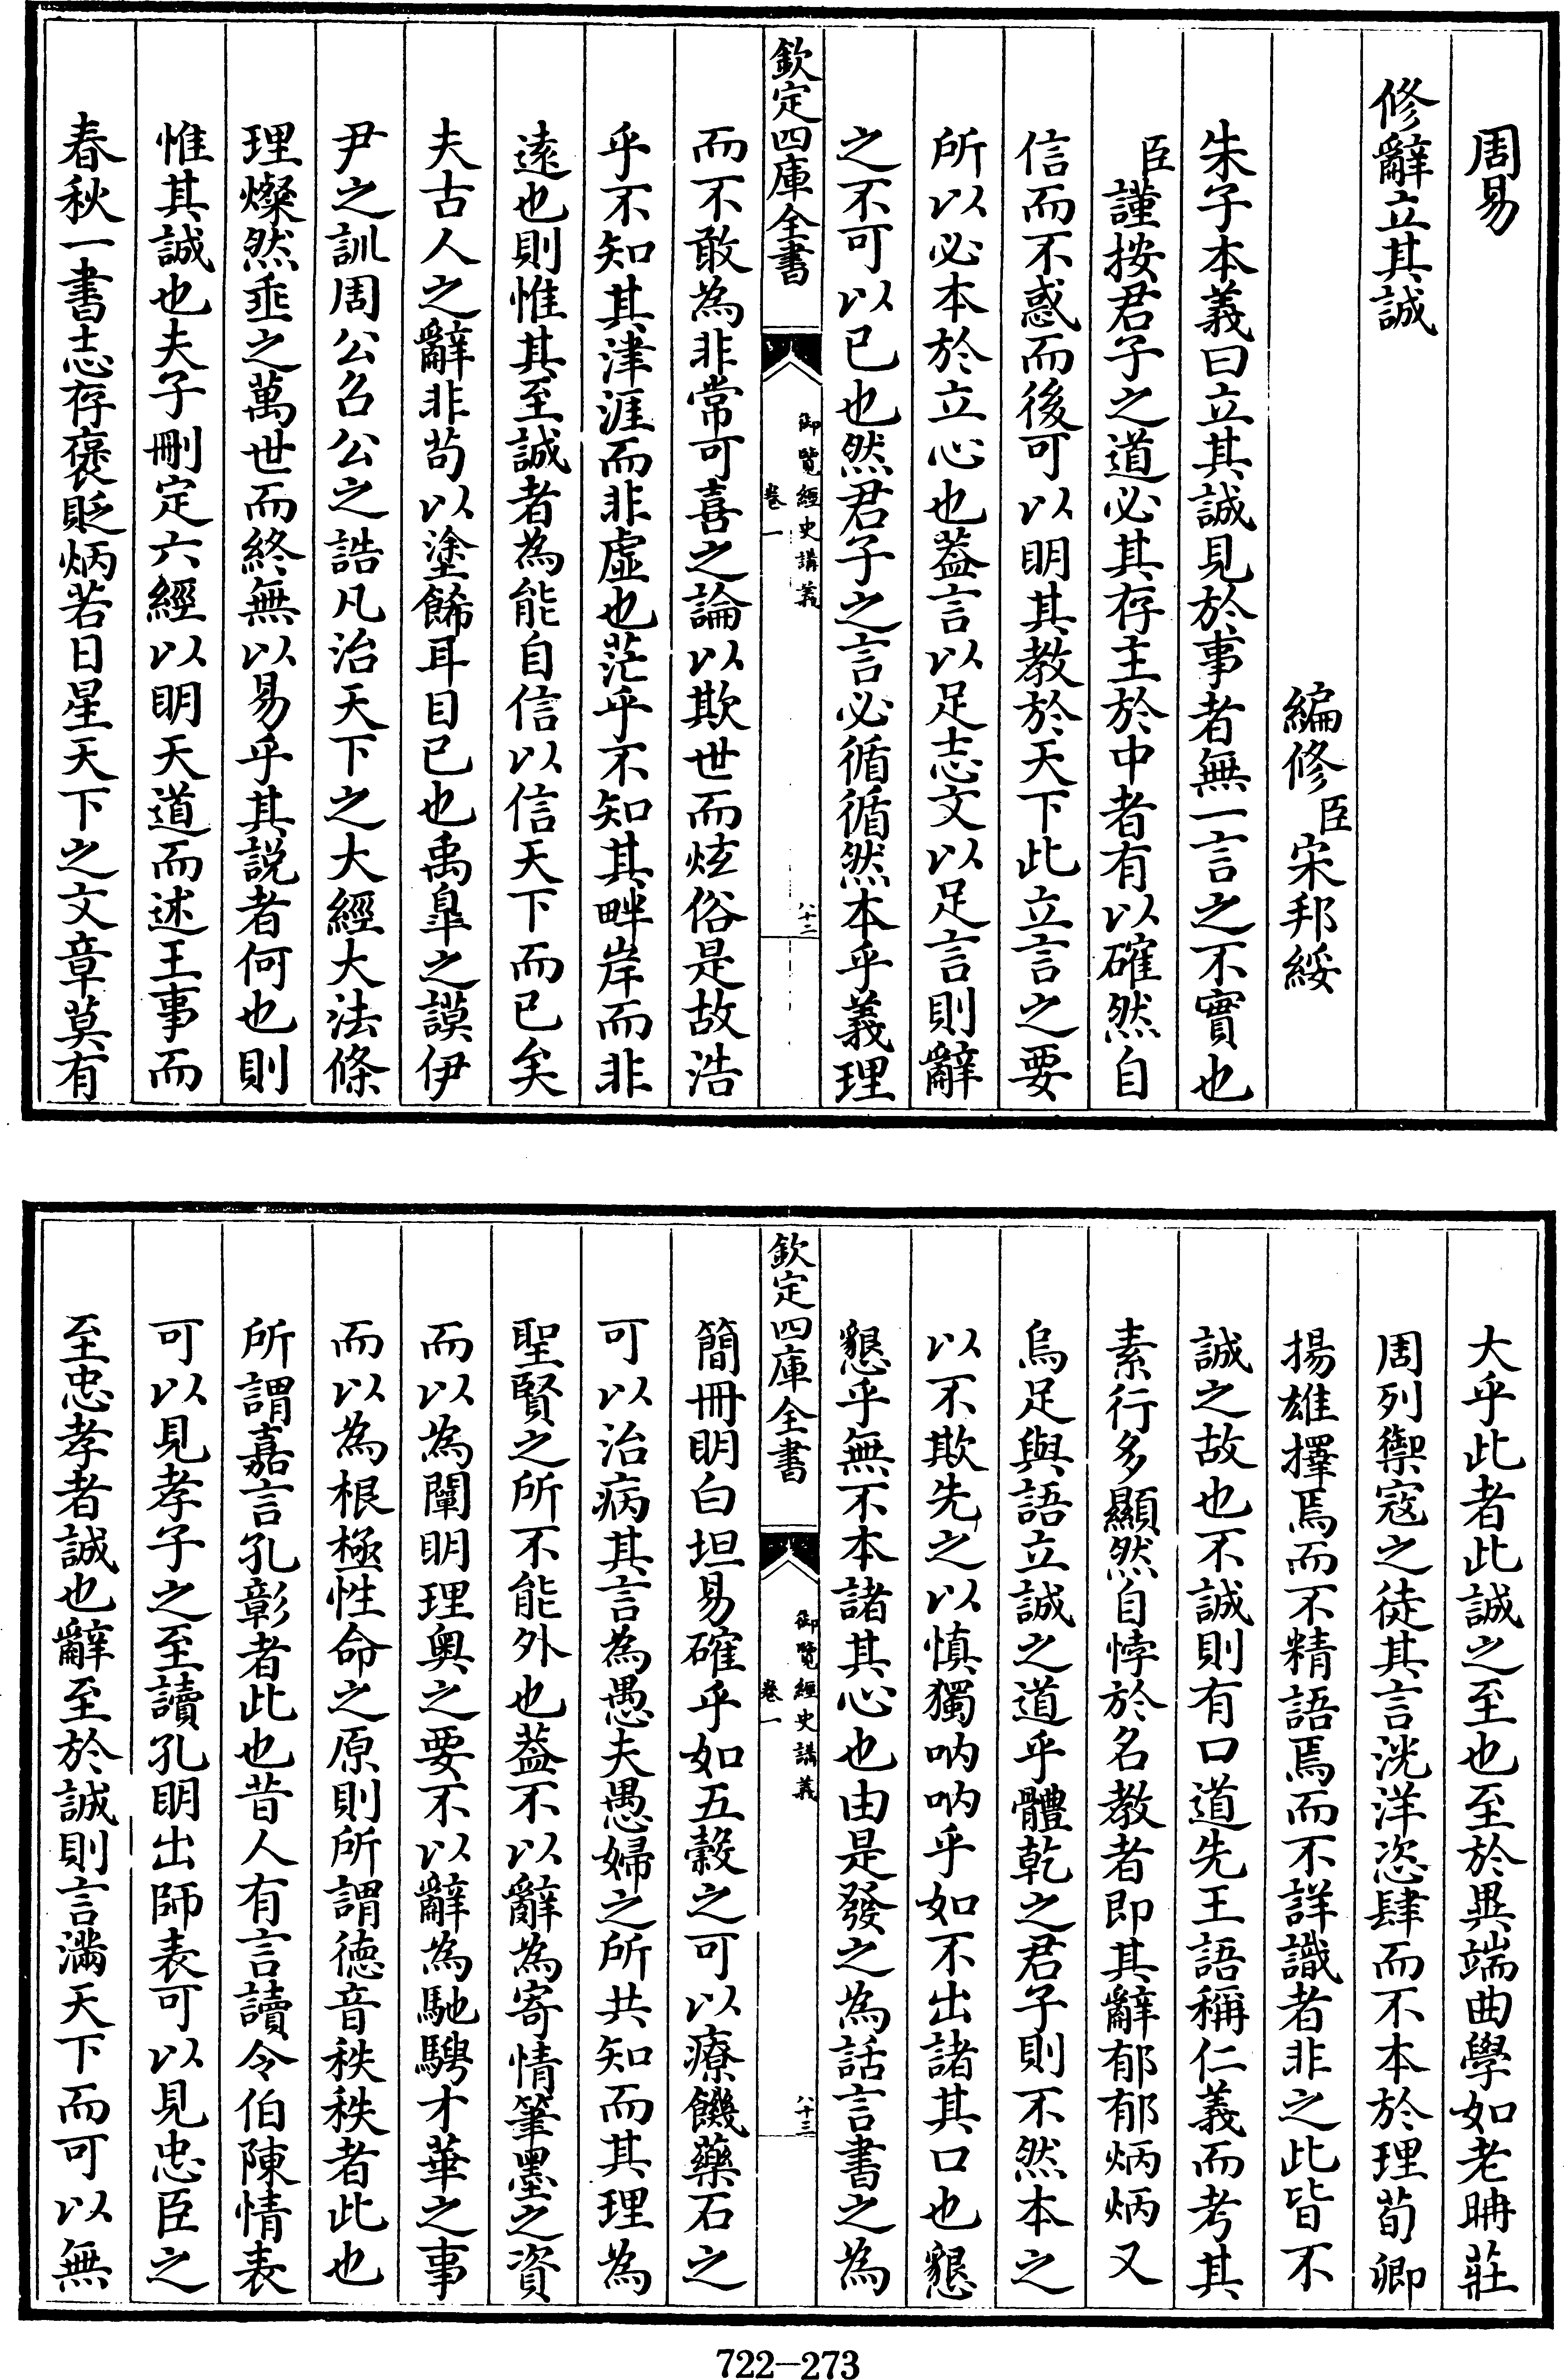 周易
修辭立其誠
編修臣宋邦綏
朱子本義曰立其誠見於事者無一言之不實也
臣謹按君子之道必其存主於中者有以確然自
信而不惑而後可以明其教於天下此立言之要
所以必本於立心也葢言以足志文以足言則辭
之不可以已也然君子之言必循循然本乎義理
欽定四庫全書
御覽經史講義
卷一
八十二
而不敢為非常可喜之論以欺世而炫俗是故浩
乎不知其津涯而非虛也茫乎不知其畔岸而非
遠也則惟其至誠者為能自信以信天下而已矣
夫古人之辭非茍以塗餙耳目已也禹臯之謨伊
尹之訓周公召公之誥凡治天下之大經大法條
理燦然垂之萬世而終無以易乎其説者何也則
惟其誠也夫子刪定六經以明天道而述王事而
春秋一書志存褒貶炳若日星天下之文章莫有
大乎此者此誠之至也至於異端曲學如老聃莊
周列禦寇之徒其言洸洋恣肆而不本於理荀卿
揚雄擇焉而不精語焉而不詳識者非之此皆不
誠之故也不誠則有口道先王語稱仁義而考其
素行多顯然自悖於名教者即其辭郁郁炳炳又
烏足與語立誠之道乎體乾之君子則不然本之
以不欺先之以慎獨吶吶乎如不出諸其口也懇
懇乎無不本諸其心也由是發之為話言書之為
欽定四庫全書
御覽經史講義
卷一
八十三
簡冊明白坦易確乎如五穀之可以療饑藥石之
可以治病其言為愚夫愚婦之所共知而其理為
聖賢之所不能外也葢不以辭為寄情筆墨之資
而以為闡明理奥之要不以辭為馳騁才華之事
而以為根極性命之原則所謂徳音秩秩者此也
所謂嘉言孔彰者此也昔人有言讀令伯陳情表
可以見孝子之至讀孔明出師表可以見忠臣之
至忠孝者誠也辭至於誠則言滿天下而可以無
722—273